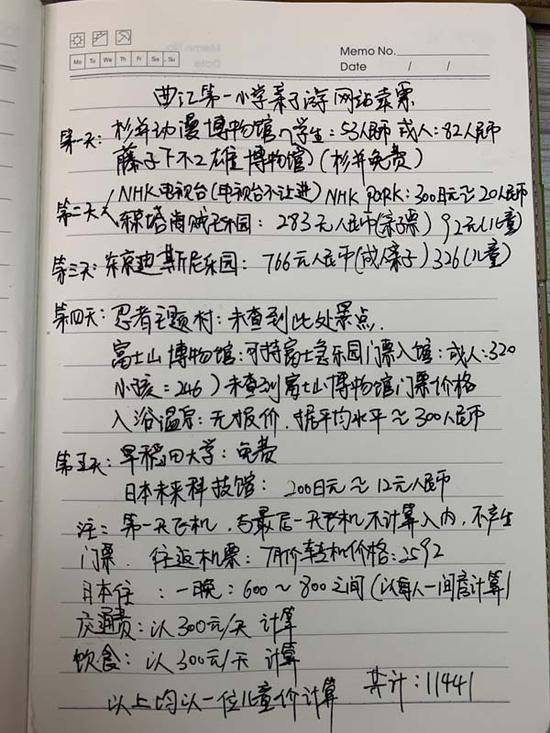 Memo No.
Mo Tu We Th Fr Sa Su
Date / /
曲江第一小学亲子游网站票
第一天: 杉并动漫博物馆 学生: 53人民币 成人: 82人民币
藤子不二雄博物馆 (杉并免费)
第二天 NHK电视台(电视台不让进) NHK PARK: 300日元≈20人民币
东京塔海贼王乐园: 283元人民币(亲子票) 92元(儿童)
第三天: 东京迪斯尼乐园: 766元人民币(成人亲子) 326(儿童)
第四天: 忍者主题村: 未查到此处景点.
富士山博物馆: 可持富士急乐园门票入馆: 成人:320
小孩: 246) 未查到富士山博物馆门票价格
入浴温泉: 无报价. 据平均水平≈300人民币
第五天: 早稻田大学: 免费
日本未来科技馆: 200日元≈12元人民币
注: 第一天飞机, 与最后一天飞机不计算入内, 不产生
门票. 往返机票: 7月价转机价格: 2592
日本住: 一晚: 600~800之间(以每人一间房计算)
交通费: 以300元/天 计算
饮食: 以300元/天 计算
以上均以一位儿童价计算 共计: 11441